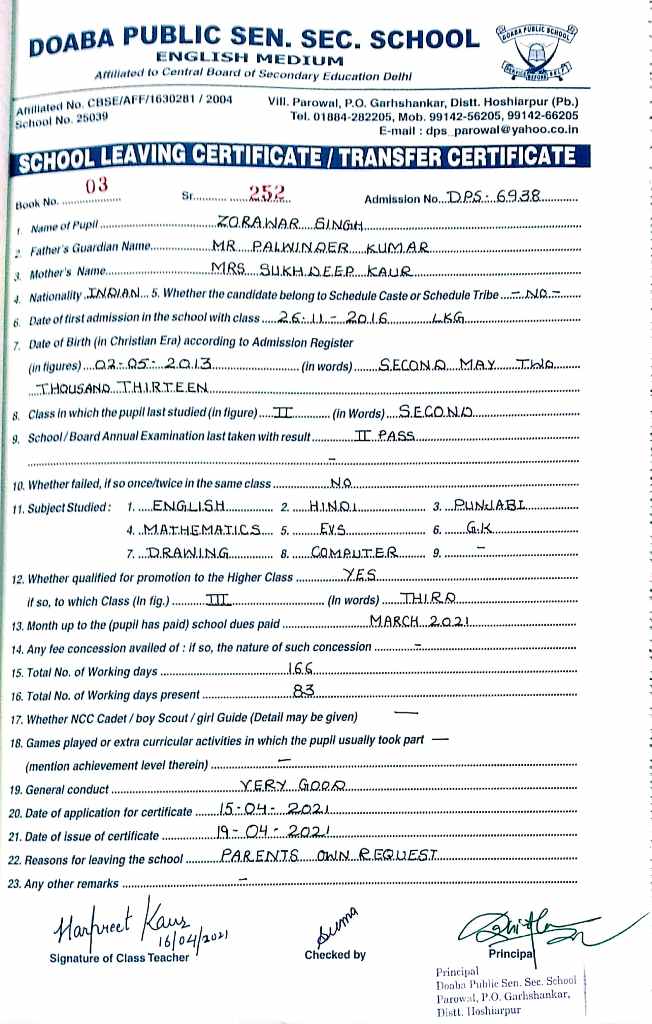 DOABA PUBLIC SEN. SEC. SCHOOL
ENGLISH MEDIUM
Affiliated to Central Board of Secondary Education Delhi
DOABA PUBLIC SCHOOL
SERVICE BEFORE SELF
Affiliated No. CBSE/AFF/1630281 / 2004
School No. 25039
Vill. Parowal, P.O. Garhshankar, Distt. Hoshiarpur (Pb.)
Tel. 01884-282205, Mob. 99142-56205, 99142-66205
E-mail : dps_parowal@yahoo.co.in
SCHOOL LEAVING CERTIFICATE / TRANSFER CERTIFICATE
Book No. 03 Sr. 252 Admission No. DPS-6938
1. Name of Pupil ZORAWAR SINGH
2. Father's Guardian Name MR PALWINDER KUMAR
3. Mother's Name MRS SUKHDEEP KAUR
4. Nationality INDIAN 5. Whether the candidate belong to Schedule Caste or Schedule Tribe - NO -
6. Date of first admission in the school with class 26-11-2016 LKG
7. Date of Birth (in Christian Era) according to Admission Register
(in figures) 02-05-2013 (in words) SECOND MAY TWO
THOUSAND THIRTEEN
8. Class in which the pupil last studied (in figure) II (in Words) SECOND
9. School / Board Annual Examination last taken with result II PASS
-
10. Whether failed, if so once/twice in the same class NO
11. Subject Studied : 1. ENGLISH 2. HINDI 3. PUNJABI
4. MATHEMATICS 5. EVS 6. G.K
7. DRAWING 8. COMPUTER 9. -
12. Whether qualified for promotion to the Higher Class YES
if so, to which Class (In fig.) III (In words) THIRD
13. Month up to the (pupil has paid) school dues paid MARCH 2021
14. Any fee concession availed of : if so, the nature of such concession -
15. Total No. of Working days 166
16. Total No. of Working days present 83
17. Whether NCC Cadet / boy Scout / girl Guide (Detail may be given) —
18. Games played or extra curricular activities in which the pupil usually took part —
(mention achievement level therein) -
19. General conduct VERY GOOD
20. Date of application for certificate 15-04-2021
21. Date of issue of certificate 19-04-2021
22. Reasons for leaving the school PARENTS OWN REQUEST
23. Any other remarks -
Harpreet Kaur
16/04/2021
Suma
Signature of Class Teacher Checked by Principal
Principal
Doaba Public Sen. Sec. School
Parowal, P.O. Garhshankar,
Distt. Hoshiarpur